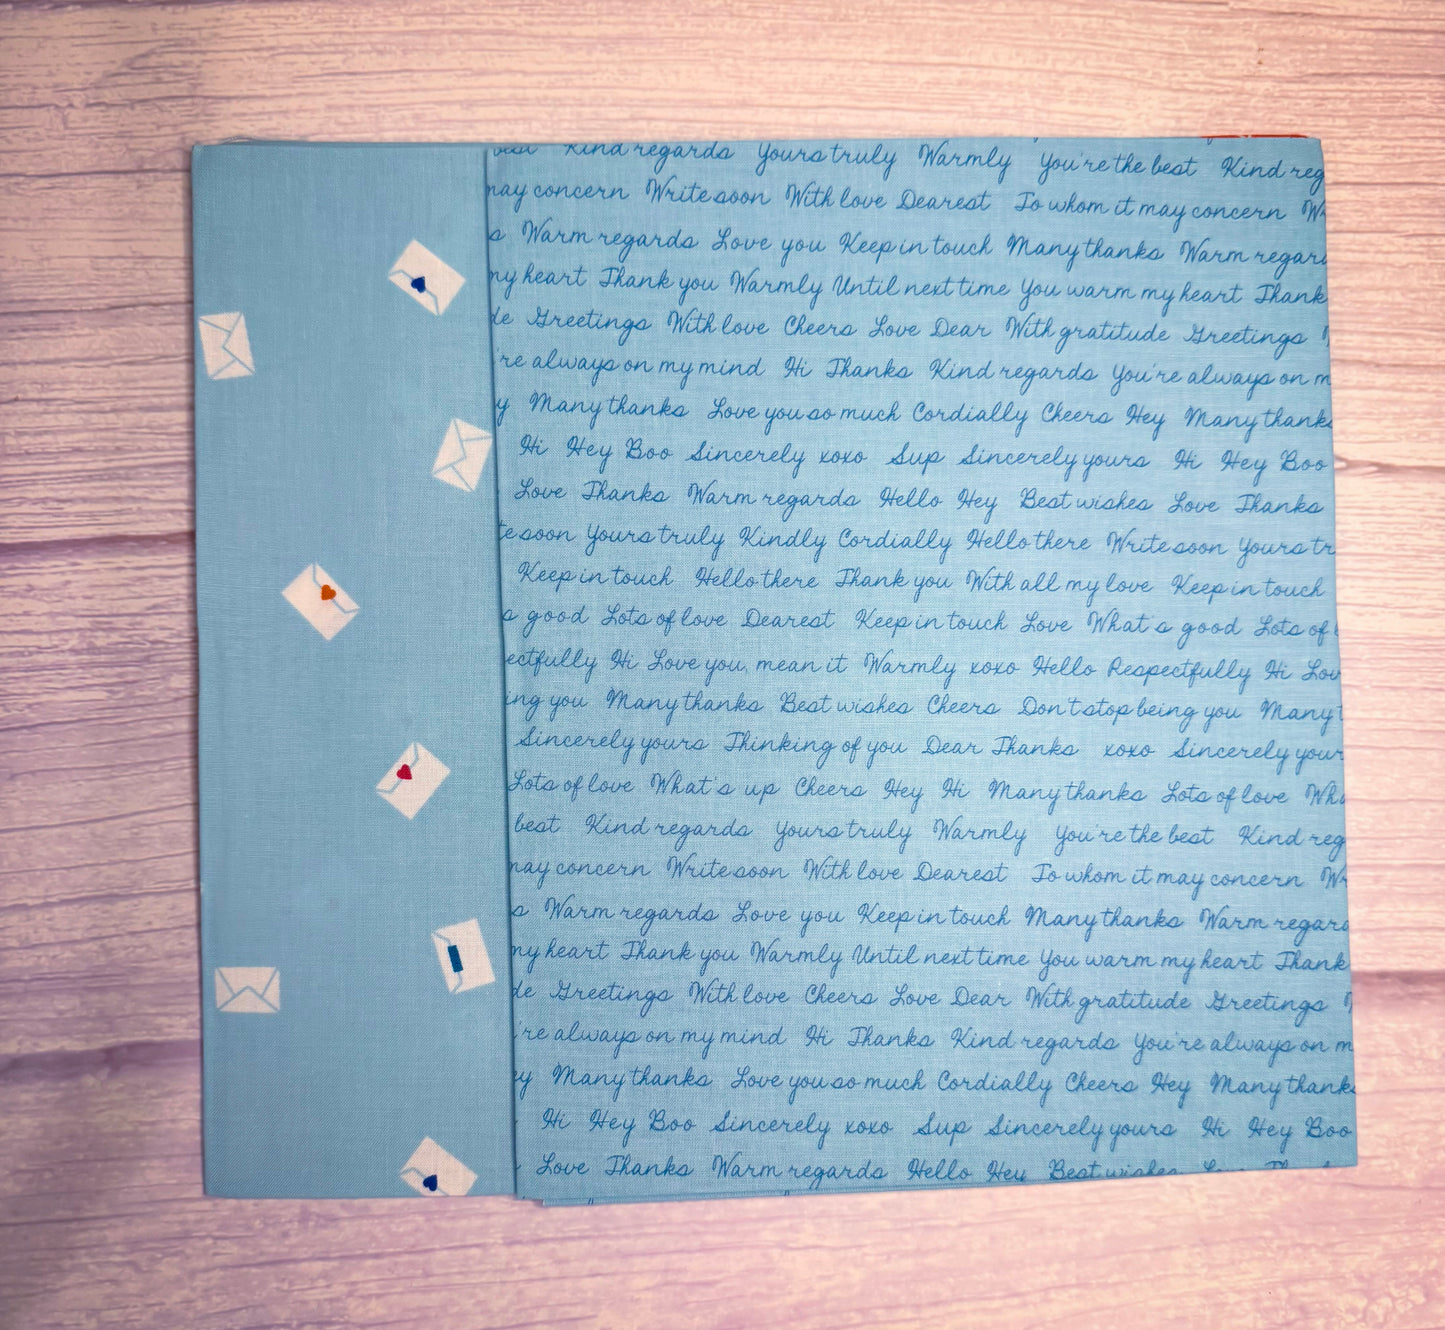 best Kind regards Yours truly Warmly You're the best Kind reg
may concern Write soon With love Dearest To whom it may concern Wr
s Warm regards Love you Keep in touch Many thanks Warm regard
my heart Thank you Warmly Until next time You warm my heart Thank
de Greetings With love Cheers Love Dear With gratitude Greetings
're always on my mind Hi Thanks Kind regards You're always on m
y Many thanks Love you so much Cordially Cheers Hey Many thanks
Hi Hey Boo Sincerely xoxo Sup Sincerely yours Hi Hey Boo
Love Thanks Warm regards Hello Hey Best wishes Love Thanks
te soon Yours truly Kindly Cordially Hello there Write soon Yours tr
Keep in touch Hello there Thank you With all my love Keep in touch
s good Lots of love Dearest Keep in touch Love What's good Lots of
ectfully Hi Love you, mean it Warmly xoxo Hello Respectfully Hi Lov
ing you Many thanks Best wishes Cheers Don't stop being you Many t
Sincerely yours Thinking of you Dear Thanks xoxo Sincerely your
Lots of love What's up Cheers Hey Hi Many thanks Lots of love Wha
best Kind regards Yours truly Warmly You're the best Kind reg
may concern Write soon With love Dearest To whom it may concern Wr
s Warm regards Love you Keep in touch Many thanks Warm regard
my heart Thank you Warmly Until next time You warm my heart Thank
de Greetings With love Cheers Love Dear With gratitude Greetings
're always on my mind Hi Thanks Kind regards You're always on m
y Many thanks Love you so much Cordially Cheers Hey Many thanks
Hi Hey Boo Sincerely xoxo Sup Sincerely yours Hi Hey Boo
Love Thanks Warm regards Hello Hey Best wishes Love Th